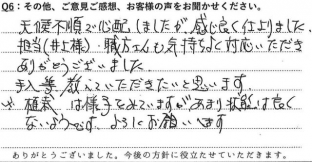 Q6：その他、ご意見ご感想、お客様の声をお聞かせください。
天候不順で心配しましたが、感じ良く仕上りました。
担当(井上様)・職方さんも気持ちよく対応いただき
ありがとうございました。
手入等教えていただきたいと思います。
※植栽は様子をみていますがあまり状態は良く
ないようです。よろしくお願います
ありがとうございました。今後の方針に役立たせていただきます。